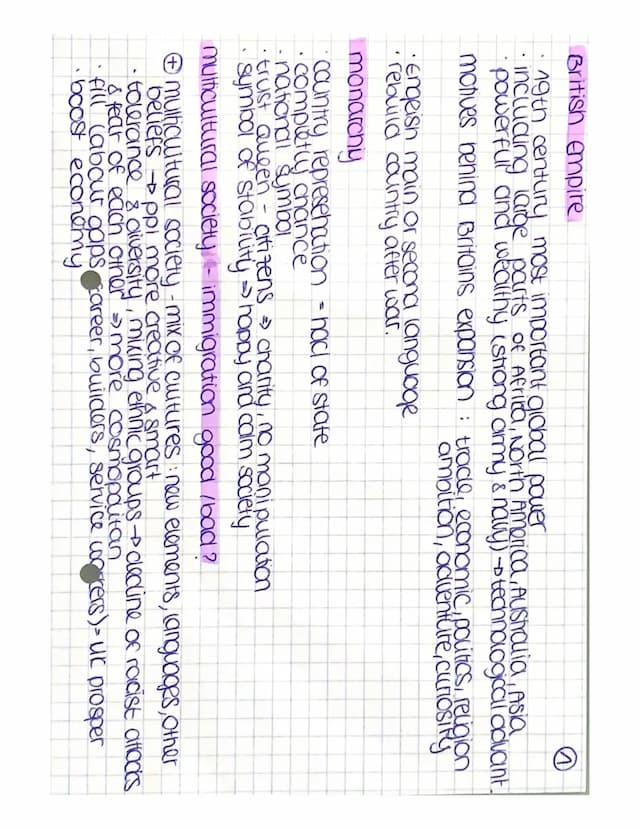 ①
British empire
· 19th century most important global power
· including large parts of Africa, North America, Australia, Asia
· powerful and wealthy (strong army & nally) → technological advant.
motives behind Britains expansion : trade, economic, politics, religion
ambition, adventure, curiosity
· Englisn main or second language
· rebuild country after war.
monarchy
· country representation = hacl of state
· completly chance
· national symbol
· trust Queen - citizens ⇒ charity, no manipulation
· symbol of stability ⇒ happy and calm society
multicultural society - immigration good / bad?
⊕ multicultural society - mix of cultures : new elements, languages, other
beliefs → ppl more creative & smart
· tolerance & diversity, mixing ethnic groups → decline of racist attacks
& fear of each other ⇒ more cosmopolitan
· fill labour gaps career, builders, service workers) = UK prosper
· boost economy